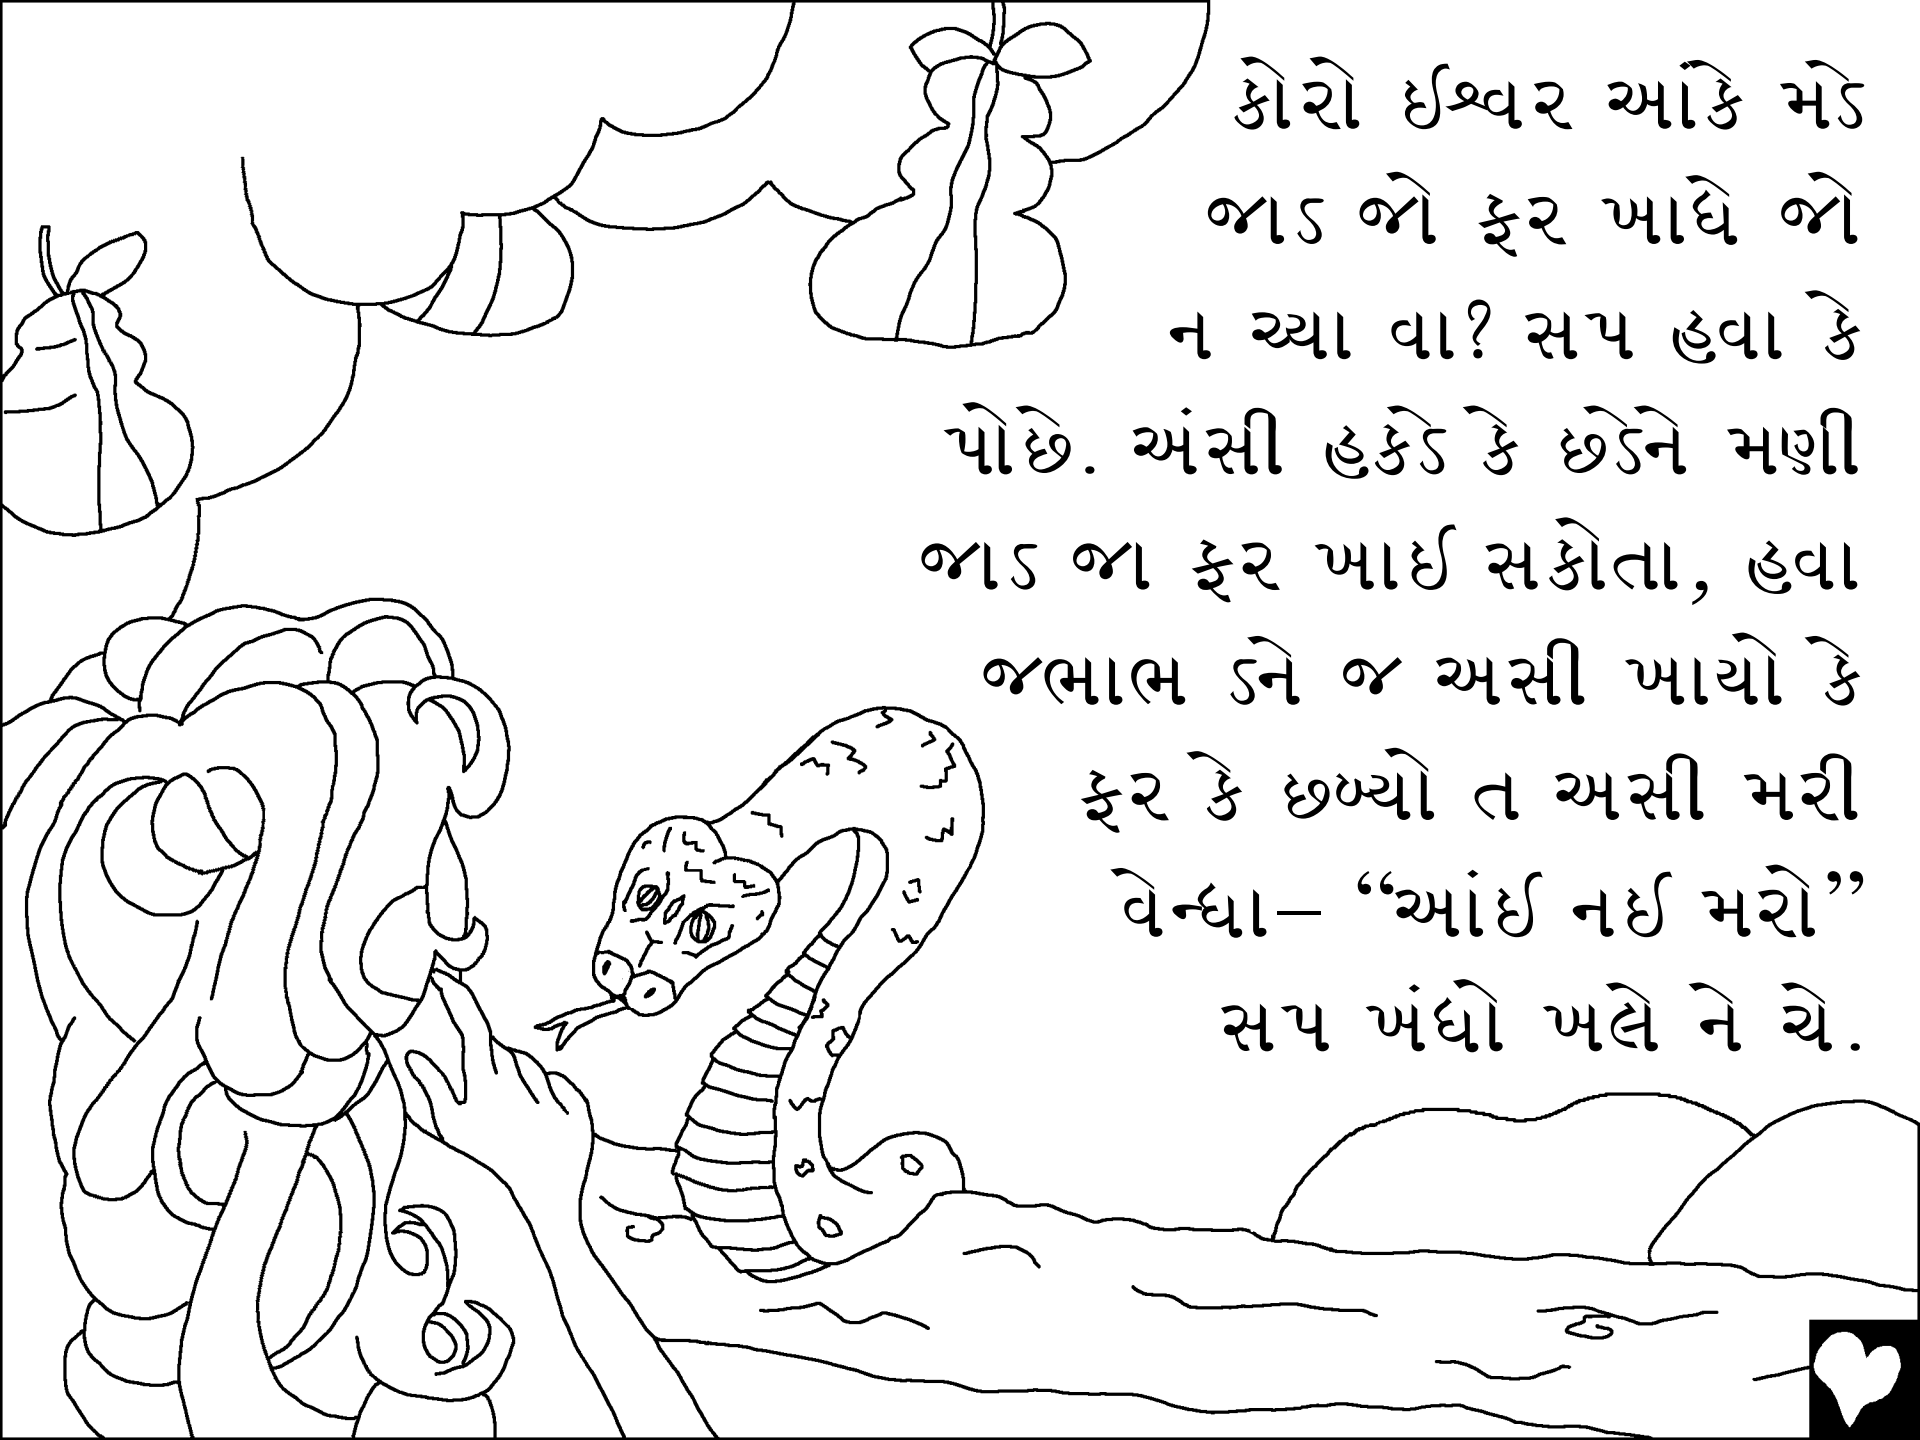 કોરો ઈશ્વર આંકે મડે
જાડ જો ફર ખાધે જો
ન ચ્યા વા? સપ હવા કે
પોછે. અંસી હકડે કે છડેને મણી
જાડ જા ફર ખાઈ સકોતા, હવા
જભાભ ડને જ અસી ખાયો કે
ફર કે છબ્યો ત અસી મરી
વેન્ધા– “આંઈ નઈ મરો”
સપ ખંધો ખલે ને ચે.